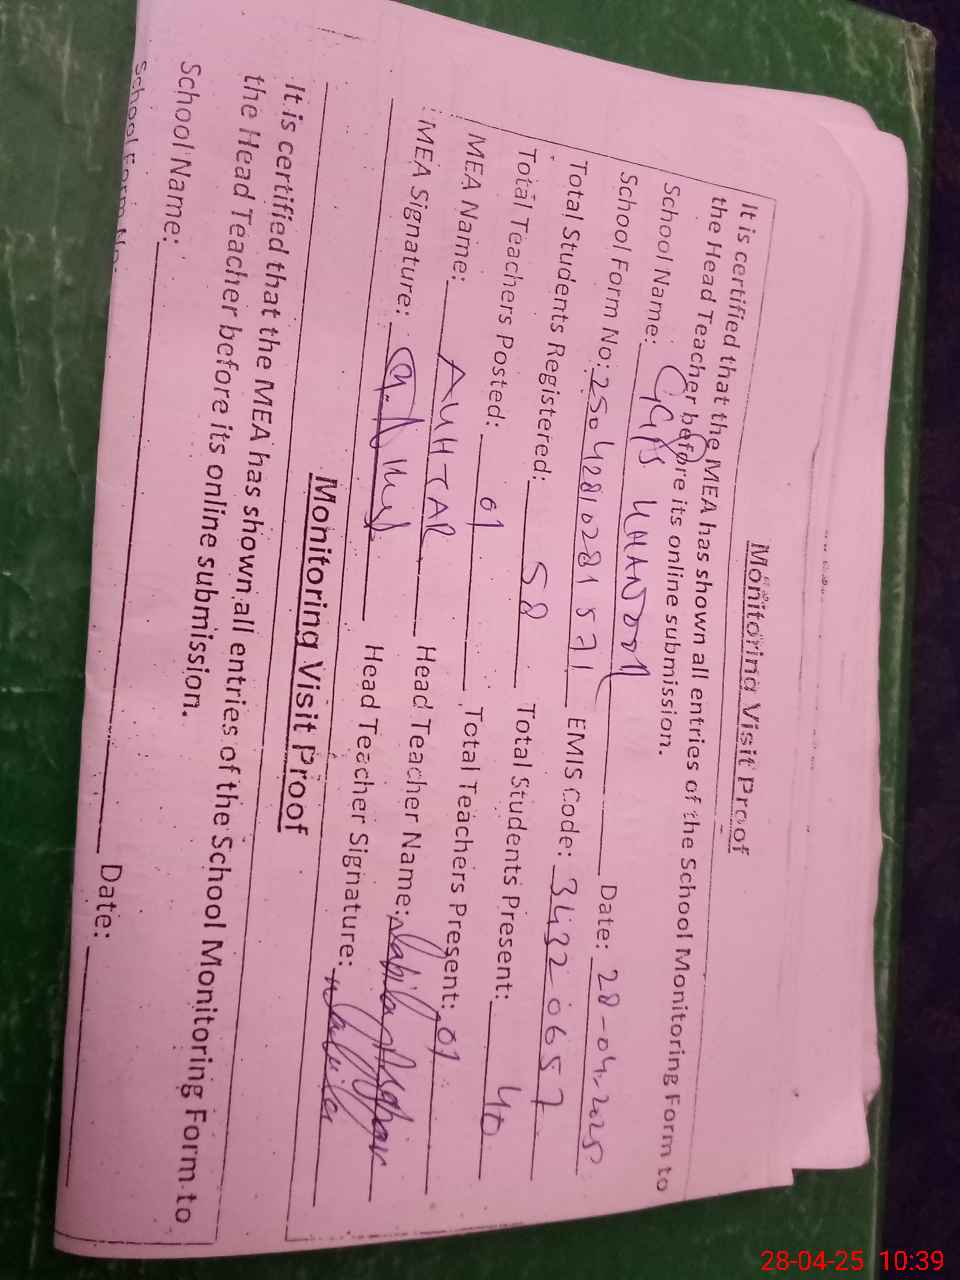 Monitoring Visit Proof
It is certified that the MEA has shown all entries of the School Monitoring Form to
the Head Teacher before its online submission.
School Name: GGPS Date: 28-04-2025
School Form No: 25042810281571 EMIS Code: 34320657
Total Students Registered: 58 Total Students Present: 40
Total Teachers Posted: 01 Total Teachers Present: 01
MEA Name: Head Teacher Name: Nabila Asghar
MEA Signature: Head Teacher Signature: Nabila
Monitoring Visit Proof
It is certified that the MEA has shown all entries of the School Monitoring Form to
the Head Teacher before its online submission.
School Name: Date:
School Form No:
28-04-25 10:39